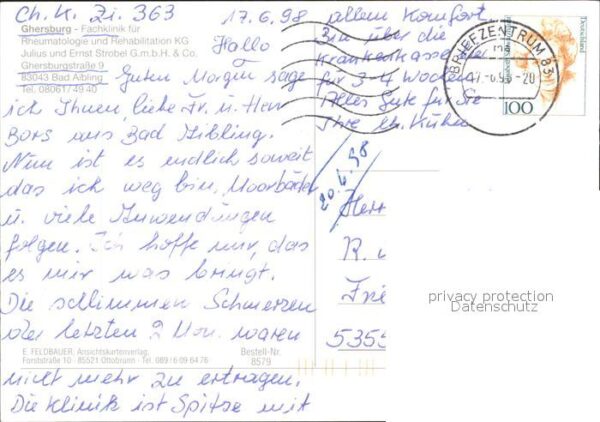 Ch. K. Zi. 363
17.6.98
Ghersburg - Fachklinik für
Rheumatologie und Rehabilitation KG
Julius und Ernst Strobel G.m.b.H. & Co.
Ghersburgstraße 9
83043 Bad Aibling
Tel. 08061/49 40
Hallo
Guten Morgen sage
ich Ihnen, liebe Fr. u. Herr
Bors aus Bad Aibling.
Nun ist es endlich soweit
das ich weg bin, Moorbäder
u. viele Anwendungen
folgen. Ich hoffe nur, das
es mir was bringt.
Die schlimmen Schmerzen
der letzten 2 Mon. waren
nicht mehr zu ertragen.
Die Klinik ist Spitze mit
allem Komfort.
Bin über die
Krankenkasse hier
für 3-4 Wochen
Alles Gute für Sie
Ihre Ch. Kühn
20.6.98
E. FELDBAUER, Ansichtskartenverlag,
Forststraße 10 - 85521 Ottobrunn - Tel. 089/6 09 64 76
Bestell-Nr.
8579
BRIEFZENTRUM 83
17.-6.98-20
Deutschland
100
Herr
R.
Frie
5355
privacy protection
Datenschutz